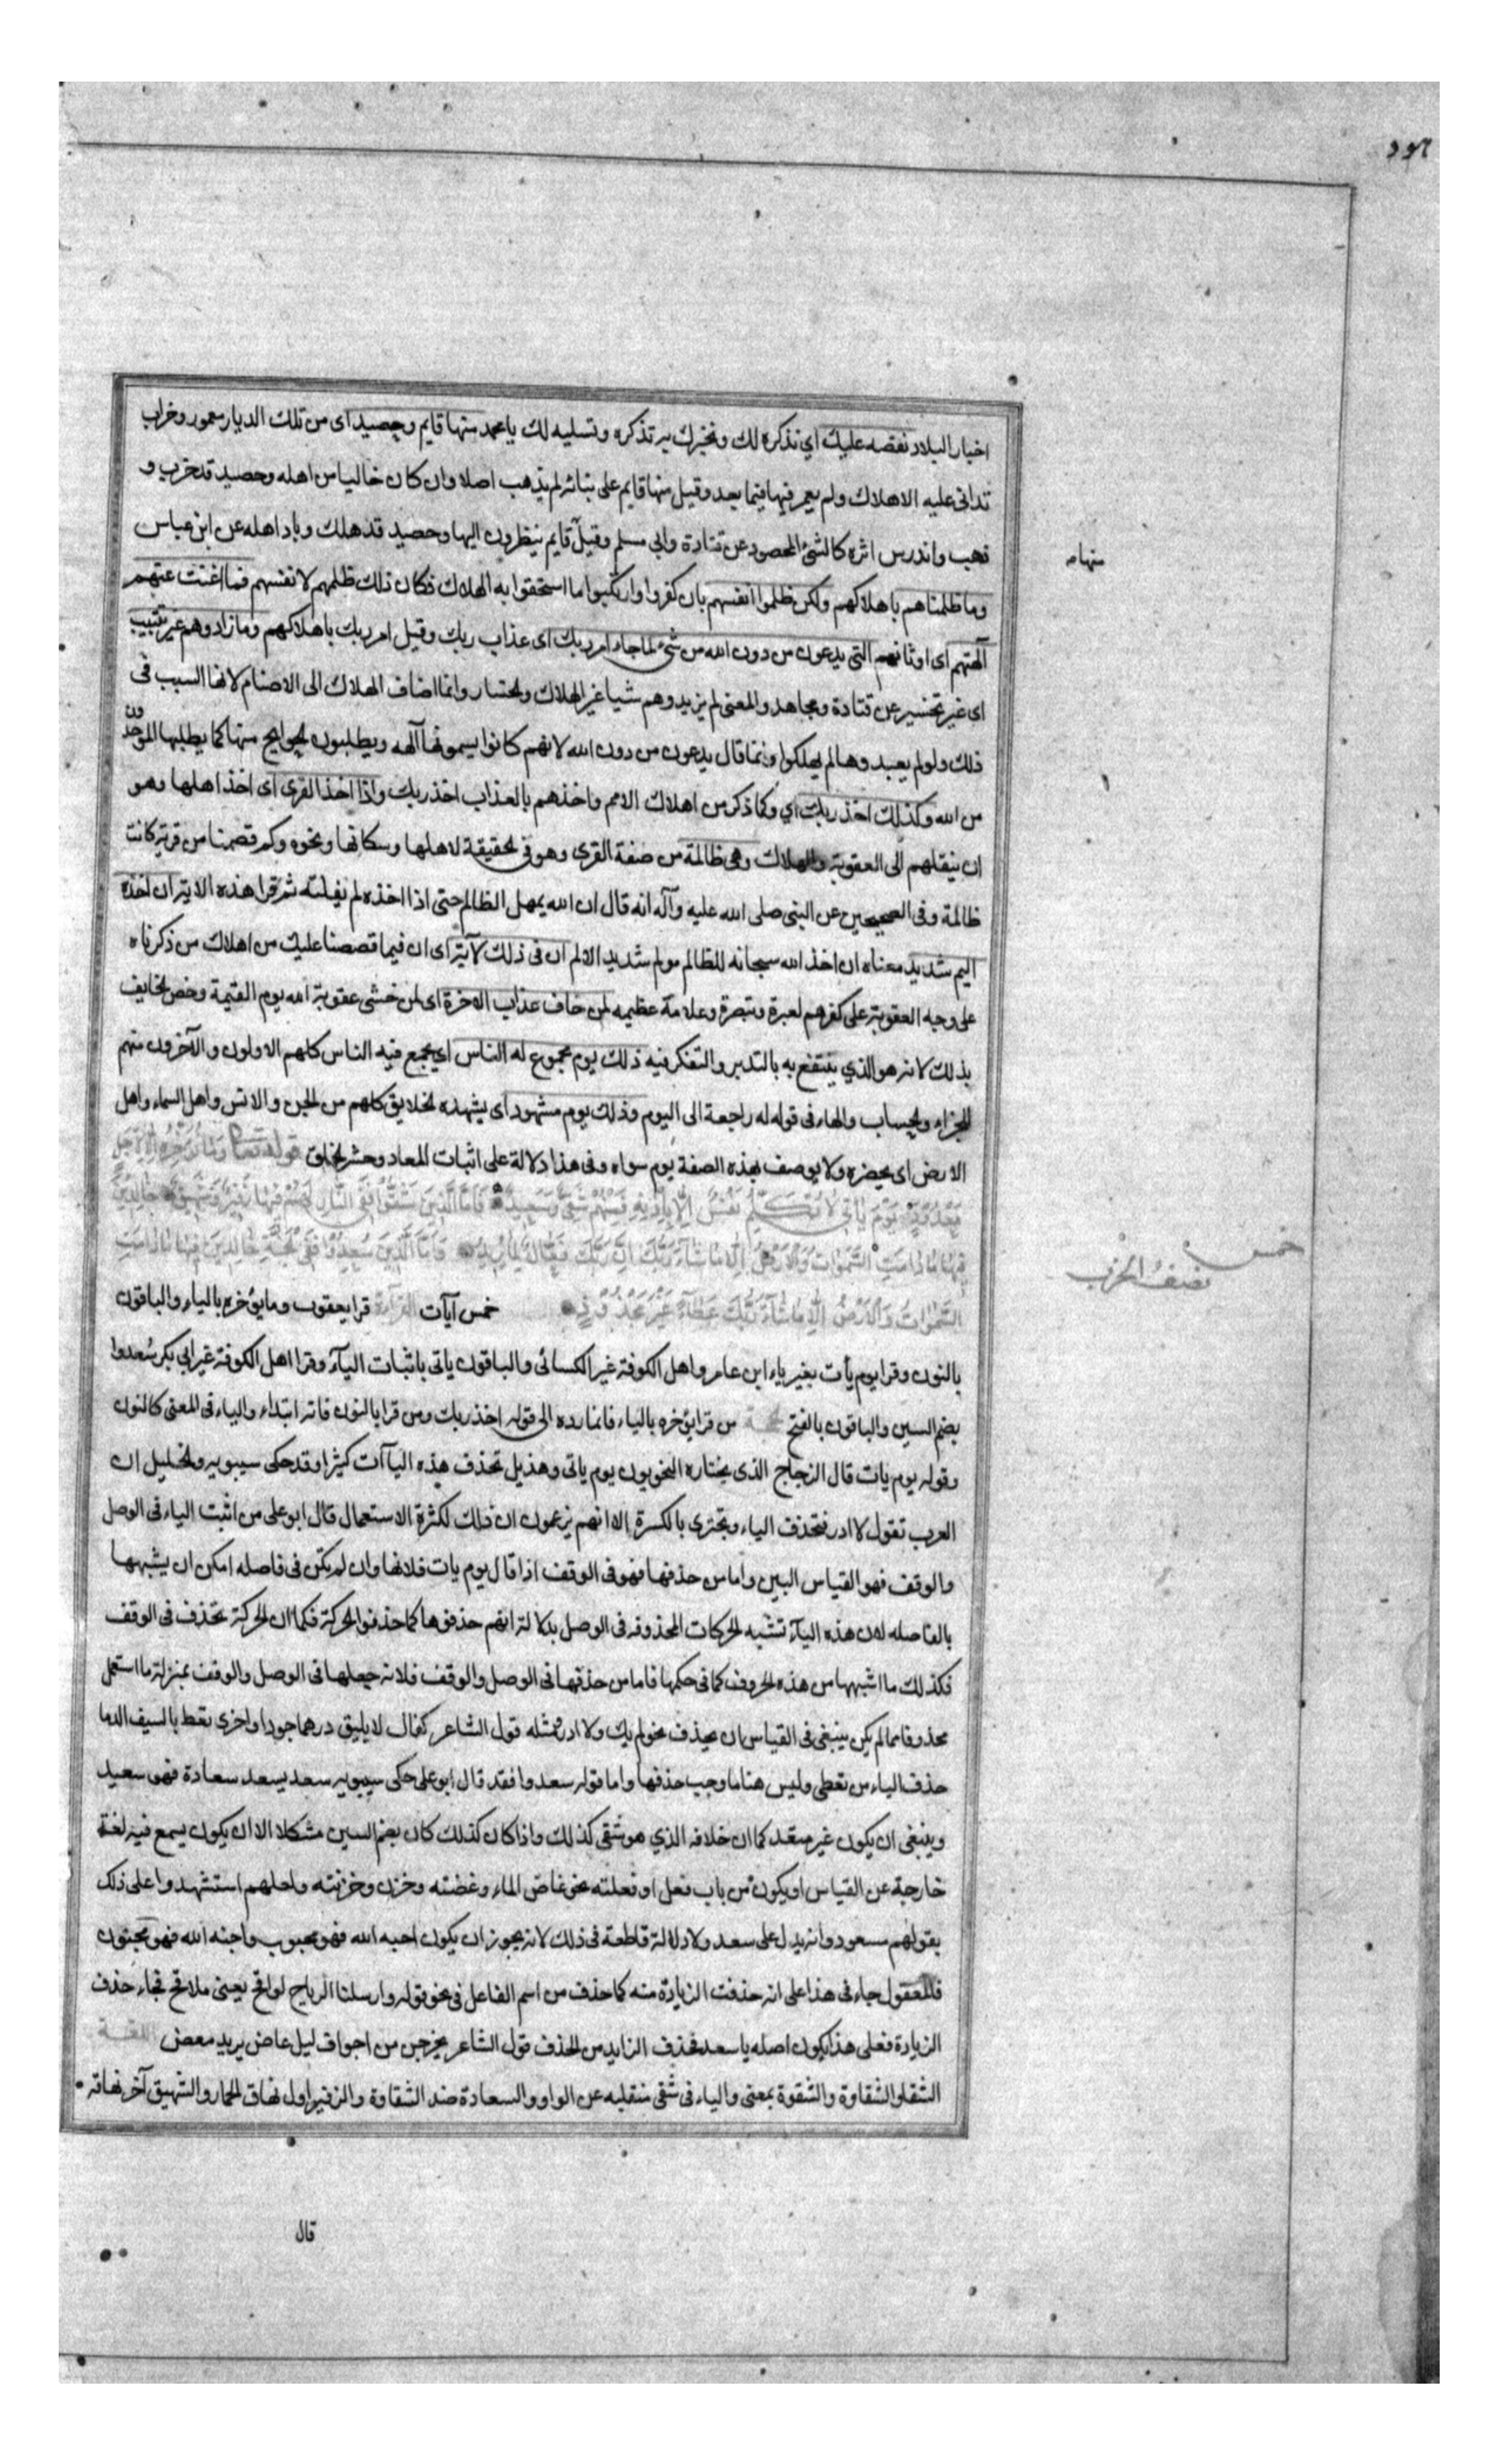 هود
اخبار البلاد نقصه عليك اي نذكره لك ونخبرك به تذكره وتسليه لك يا محمد منها قايم وحصيد اى من تلك الديار معمور وخراب
قد اتى عليه الاهلاك ولم يعمر فيها فيما بعد وقيل منها قايم على بنائه لم يذهب اصلا وان كان خاليا من اهله وحصيد قد خرب و
ذهب واندرس اثره كالشئ المحصود عن قتادة وابي مسلم وقيل قايم ينظرون اليها وحصيد قد هلك وباد اهله عن ابن عباس
منهام
وما ظلمناهم باهلاكهم ولكن ظلموا انفسهم بان كفروا وارتكبوا ما استحقوا به الهلاك فكان ذلك ظلمهم لانفسهم فما اغنت عنهم
آلهتهم اى اوثانهم التى يدعون من دون الله من شئ لما جاء امر ربك اى عذاب ربك وقيل امر ربك باهلاكهم وما زادوهم غير تتبيب
اى غير تخسير عن قتادة ومجاهد والمعنى لم يزيدوهم شيا غير الهلاك والخسار وانما اضاف الهلاك الى الاصنام لانها السبب فى
ذلك ولو لم يعبدوها لم يهلكوا وانما قال يدعون من دون الله لانهم كانوا يسمونها آلهه ويطلبون الحوايج منها كما يطلبها الموحدون
من الله وكذلك اخذ ربك اي وكما ذكر من اهلاك الامم واخذهم بالعذاب اخذ ربك واذا اخذ القرى اى اخذ اهلها وهو
ان ينقلهم الى العقوبة والهلاك وهى ظالمة من صفة القرى وهو فى الحقيقة لاهلها وسكانها ونحوه وكم قصمنا من قرية كانت
ظالمة وفى الصحيحين عن النبى صلى الله عليه وآله انه قال ان الله يمهل الظالم حتى اذا اخذه لم يفلته ثم قرا هذه الاية ان اخذه
اليم شديد معناه ان اخذ الله سبحانه للظالم مولم شديد الالم ان فى ذلك لآية اى ان فيما قصصنا عليك من اهلاك من ذكرناه
على وجه العقوبة على كفرهم لعبرة وتبصرة وعلامة عظيمه لمن خاف عذاب الاخرة اى لمن خشى عقوبة الله يوم القيمة وخص الخايف
بذلك لانه هو الذي ينتفع به بالتدبر والتفكر فيه ذلك يوم مجموع له الناس اي يجمع فيه الناس كلهم الاولون والآخرون منهم
للجزاء والحساب والهاء فى قوله له راجعة الى اليوم وذلك يوم مشهود اى يشهده الخلايق كلهم من الجن والانس واهل السماء واهل
الارض اى يحضره ولا يوصف بهذه الصفة يوم سواه وفى هذا دلالة على اثبات المعاد وحشر الخلق قوله تعالى وَمَا نُؤَخِّرُهُ إِلَّا لِأَجَلٍ
مَعْدُودٍ يَوْمَ يَأْتِ لَا تَكَلَّمُ نَفْسٌ إِلَّا بِإِذْنِهِ فَمِنْهُمْ شَقِيٌّ وَسَعِيدٌ فَأَمَّا الَّذِينَ شَقُوا فَفِي النَّارِ لَهُمْ فِيهَا زَفِيرٌ وَشَهِيقٌ خَالِدِينَ
فِيهَا مَا دَامَتِ السَّمٰوَاتُ وَالْأَرْضُ إِلَّا مَا شَاءَ رَبُّكَ إِنَّ رَبَّكَ فَعَّالٌ لِمَا يُرِيدُ وَأَمَّا الَّذِينَ سُعِدُوا فَفِي الْجَنَّةِ خَالِدِينَ فِيهَا مَا دَامَتِ
خمس
نصف الحزب
السَّمٰوَاتُ وَالْأَرْضُ إِلَّا مَا شَاءَ رَبُّكَ عَطَاءً غَيْرَ مَجْذُوذٍ خمس آيات القراءة قرا يعقوب وما يؤخره بالياء والباقون
بالنون وقرا يوم يأت بغير ياء ابن عامر واهل الكوفة غير الكسائى والباقون ياتى باثبات اليآء وقرا اهل الكوفة غير ابي بكر سُعدوا
بضم السين والباقون بالفتح الحجة من قرا يؤخره بالياء فانما رده الى قوله اخذ ربك ومن قرا بالنون فانه ابتداء والياء فى المعنى كالنون
وقوله يوم يات قال الزجاج الذى يختاره النحويون يوم ياتى وهذيل تحذف هذه اليآات كثيرا وقد حكى سيبويه والخليل ان
العرب تقول لا ادر فتحذف الياء وتجتزى بالكسرة الا انهم يزعمون ان ذلك لكثرة الاستعمال قال ابو على من اثبت الياء فى الوصل
والوقف فهو القياس البين واما من حذفها فهو فى الوقف اذا قال يوم يات فلانها وان لم تكن فى فاصله امكن ان يشبهها
بالفاصله لان هذه اليآء تشبه الحركات المحذوفه فى الوصل بدلالة انهم حذفوها كما حذفوا الحركة فكما ان الحركة تحذف فى الوقف
فكذلك ما اشبهها من هذه الحروف كما فى حكمها فاما من حذفها فى الوصل والوقف فلانه جعلها فى الوصل والوقف بمنزلة ما استعمل
محذوفا مما لم يكن ينبغى فى القياس ان يحذف نحو لم يك ولا ادر ومثله قول الشاعر كفاك لا يليق درهما جودا واخرى تعط بالسيف الدما
حذف الياء من تعطى وليس هنا ما وجب حذفها واما قوله سعدوا فقد قال ابو على حكى سيبويه سعد يسعد سعادة فهو سعيد
وينبغى ان يكون غير متعد كما ان خلافه الذي هو شقى كذلك واذا كان كذلك كان بضم السين مشكلا الا ان يكون يسمع فيه لغة
خارجة عن القياس او يكون من باب فعل او فعلته نحو غاض الماء وغضته وحزن وحزنته ولعلهم استشهدوا على ذلك
بقولهم مسعود وانه يدل على سعد ولا دلالة قاطعة فى ذلك لانه يجوز ان يكون احبه الله فهو محبوب واجنه الله فهو مجنون
فالمفعول جاء فى هذا على انه حذفت الزيادة منه كما حذف من اسم الفاعل فى نحو قوله وارسلنا الرياح لواقح يعنى ملاقح فجاء حذف
الزيادة فعلى هذا يكون اصله ياسعد فحذف الزايد من الحذف قول الشاعر يخرجن من اجواف ليل غاض يريد مغض اللغة
الشقاء والشقاوة والشقوة بمعنى والياء فى شقى منقلبه عن الواو والسعادة ضد الشقاوة والزفير اول نهاق الحمار والشهيق آخر نهاقه
قال